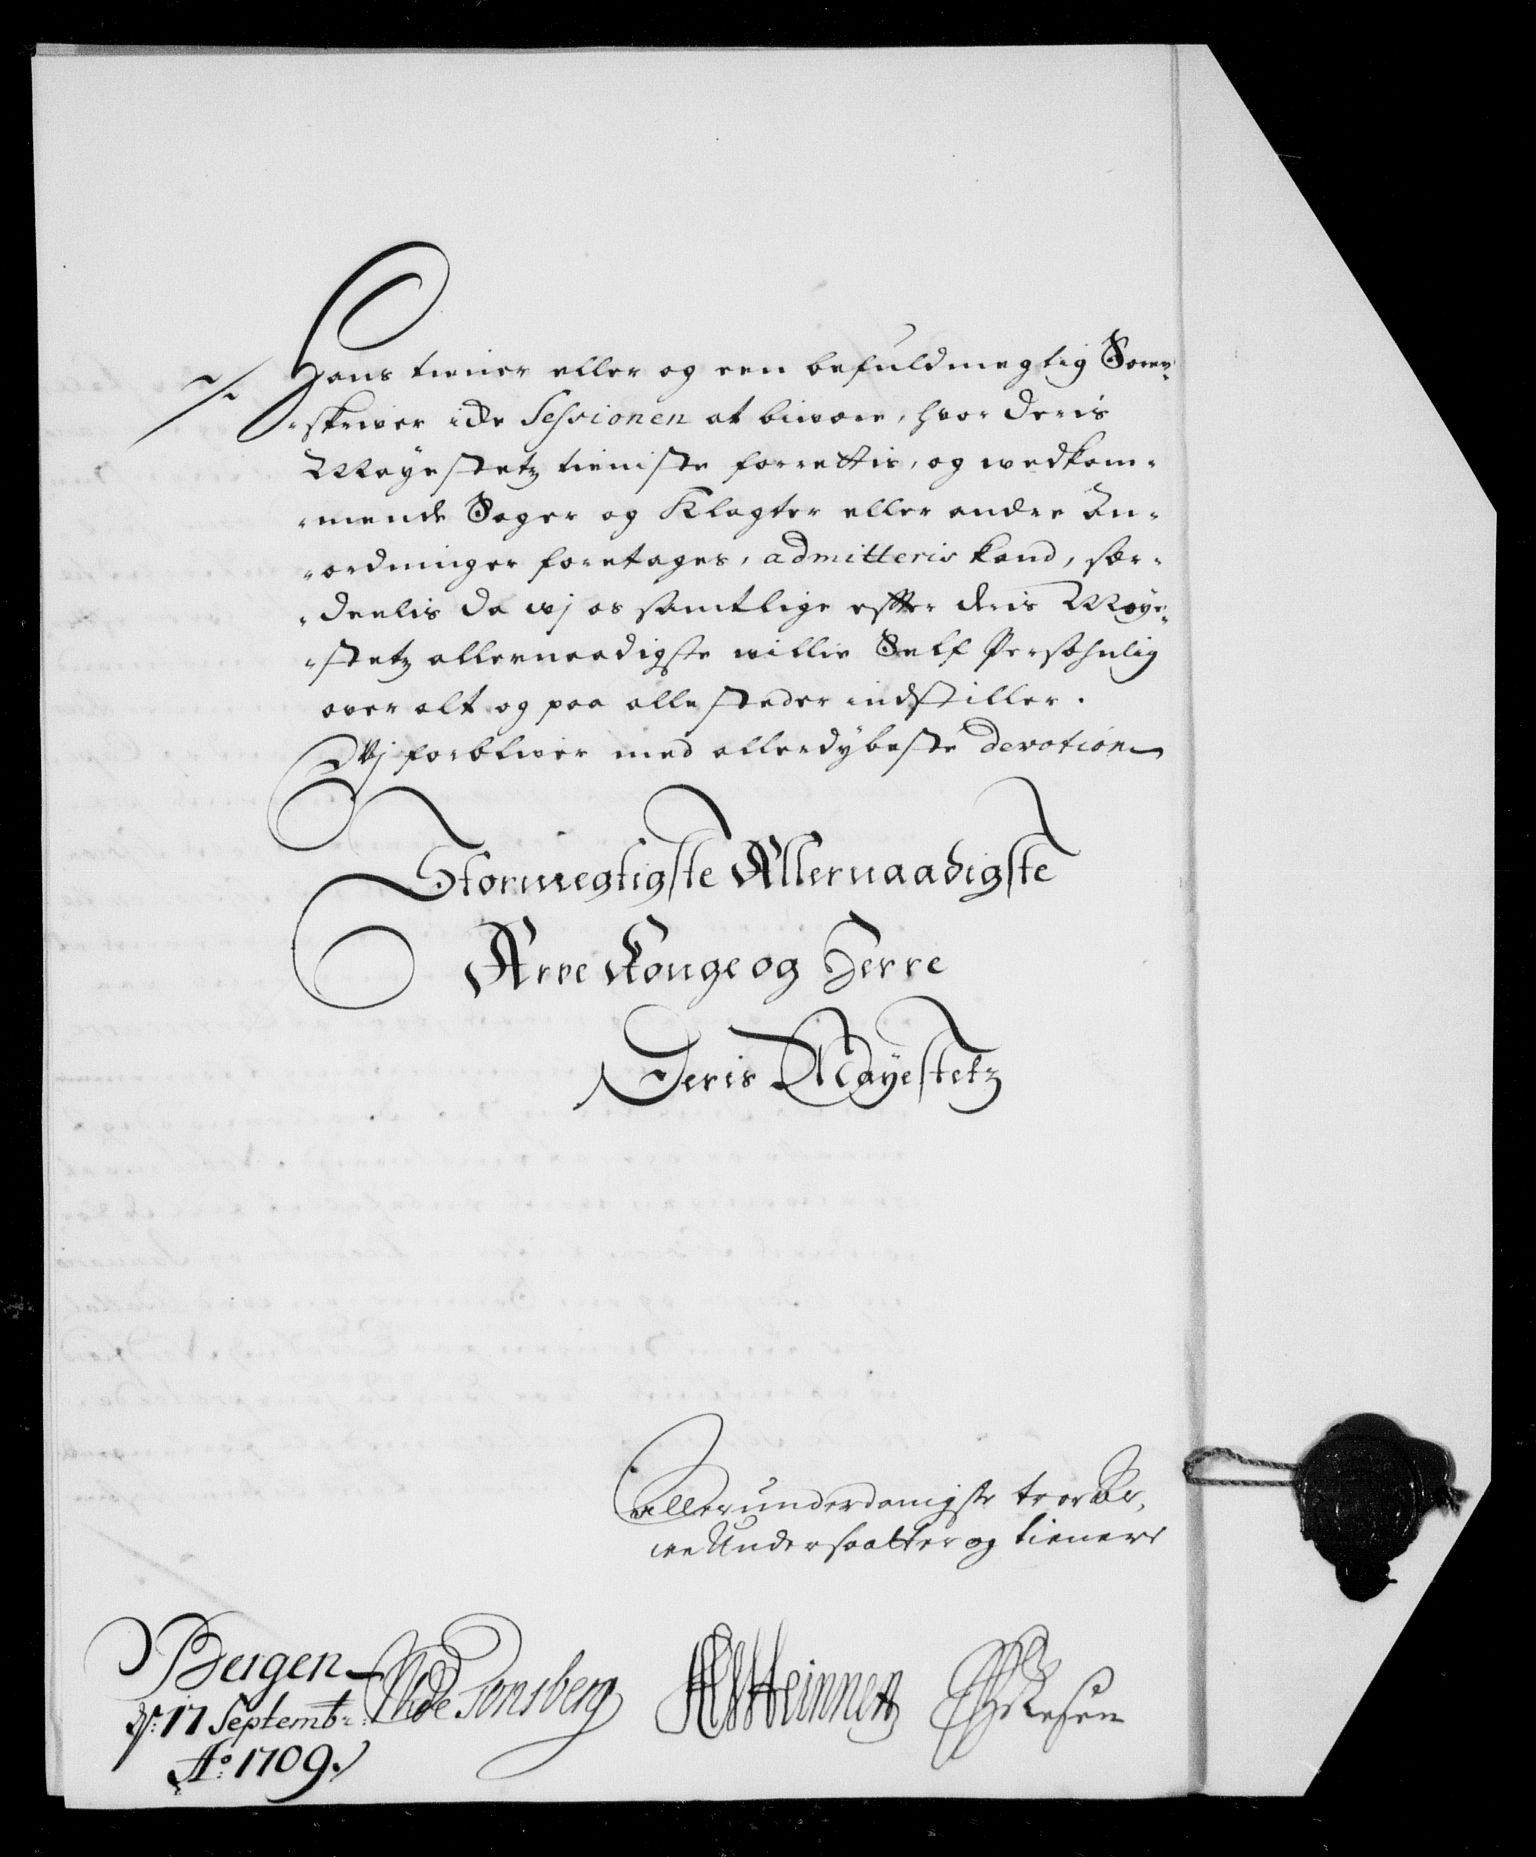 Hans tiener eller og een befuldmegtig Soren-
-skriver i de Sessionen at biwære, hvor Deris
Mayestetz tieniste forrettis, og wedkom-
-mende Sager og Klagter eller andre An-
-ordninger foretages, admitteris kand, sær-
-deelis da wj os samtlige effter Deris Maye-
-stetz allernaadigste willie Self Persohnlig
over alt og paa alle steder indstiller.
Wj forbliver med allerdybeste devotion
Stormegtigste Allernaadigste
Arve Konge og Herre
Deris Mayestetz
allerunderdanigste troe
Undersaatter og tienere
Bergen
d: 17 Septembr:
Ao: 1709.
WDe Tonsberg